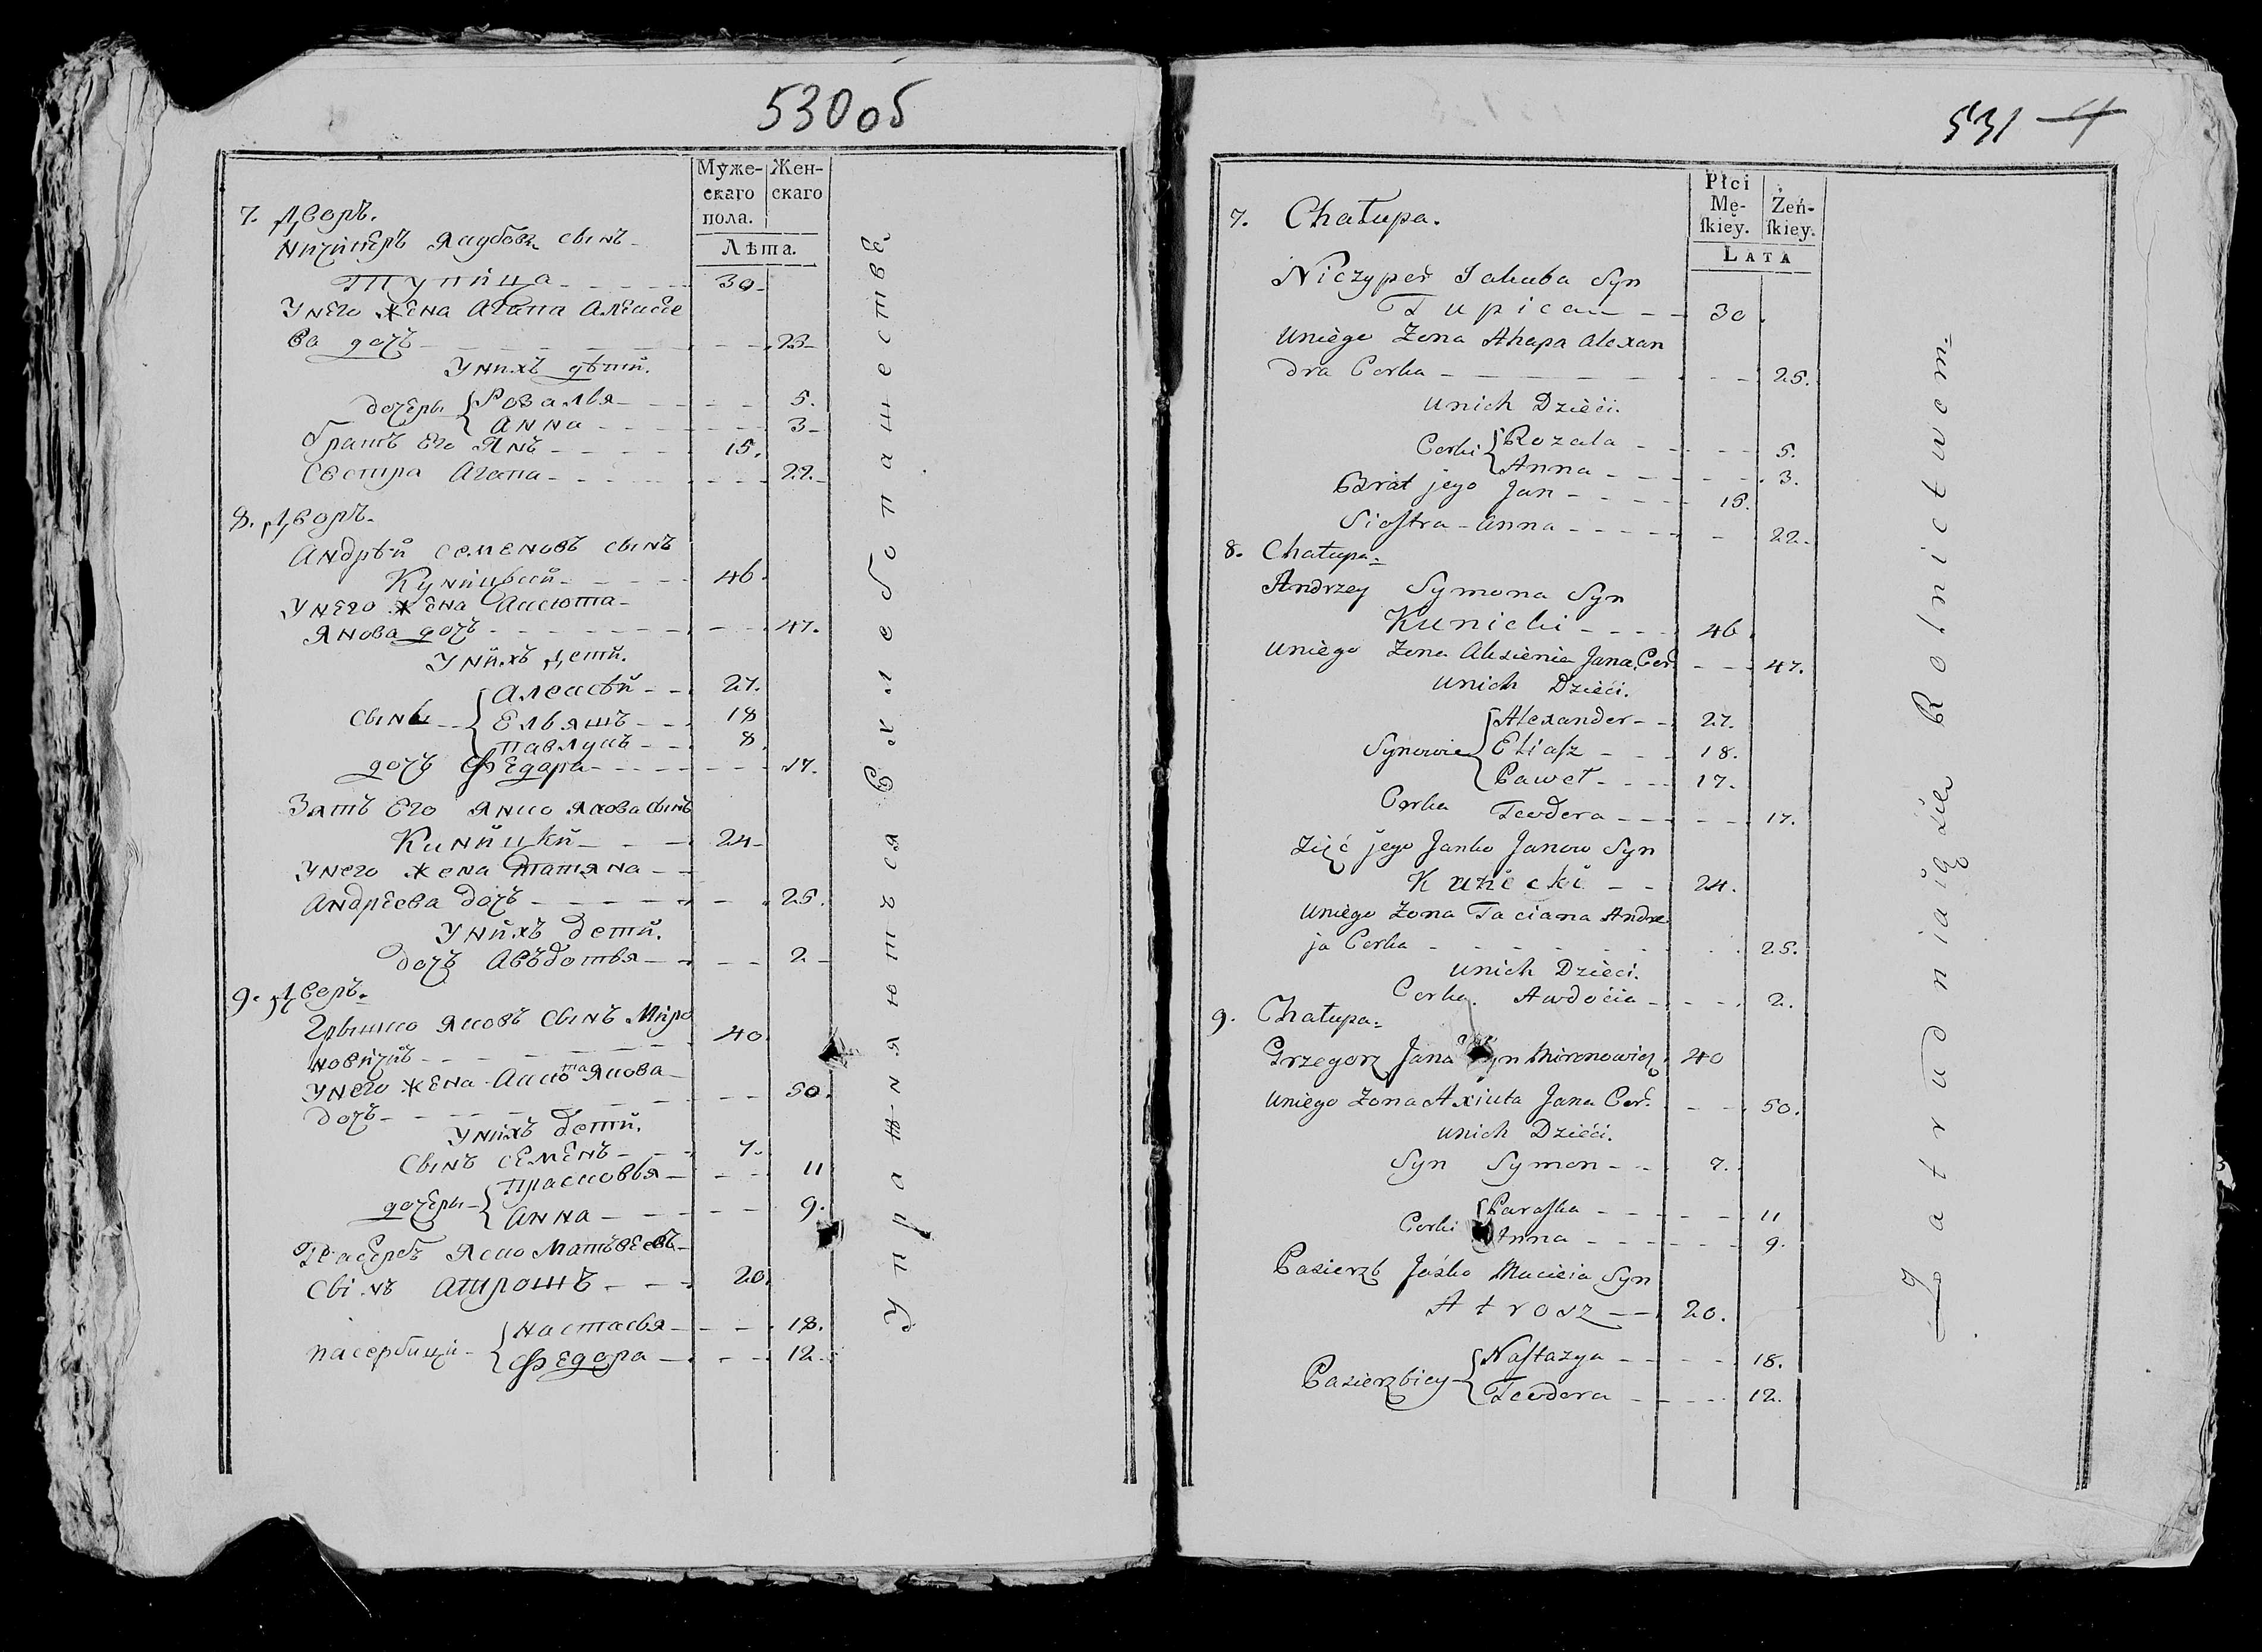 530об
Муже-
скаго
пола.
Жен-
скаго
Лѣта.
7. Дворъ.
Ничиперъ Якубовъ сынъ
Тупица 30
У него жена Агапа Алексее
ва дочь 23
У нихъ дѣти.
дочери Розалья 5.
Анна 3
братъ его Янъ 15.
Сестра Агапа 22.
8. Дворъ.
Андрѣй Семеновъ сынъ
Куницкий 46.
У него жена Аксюта
Янова дочь 47.
У нихъ дети.
сынъ Алексѣй 27.
Ельяшъ 18
Павлукъ 8.
дочь Федара 17.
Зять его Янко Якова сынъ
24
У него жена Татяна
Андреева дочь 25.
У нихъ дети.
дочь Авъдотья 2
9. Дворъ.
Грышко Яковъ сынъ Миро
новичъ 40
У него жена Аксюта Якова
дочь 50.
У нихъ дети.
Сынъ Семенъ 7.
дочери Прасковья 11
Анна 9.
Пасербъ Яско Матъвеевъ
сынъ Атрошъ 20
пасербицы Настасья 18.
Федора 12.
Упражняются въ хлебопашествѣ
531
4
Płci
Mę-
skiey.
Żeń-
skiey.
LATA
7. Chałupa.
Niczyper Jakuba Syn
Tupica 30.
Uniego Żona Ahapa Alexan
dra Corka 25.
Unich Dzieci.
Corki Rozala 5.
Anna 3.
Brat jego Jan 15.
Siostra Anna 22.
8. Chałupa
Andrzey Symona Syn
Kunicki 46.
Uniego Żona Alxienia Jana Cor. 47.
Unich Dzieci.
Synowie Alexander 27.
Eliasz 18.
Paweł 17.
Corka Teodera 17.
Zięć jego Janko Janow Syn
24.
Uniego Żona Taciana Andre
ja Corka 25.
Unich Dzieci.
Corka. Awdocia 2.
9. Chałupa
Grzegorz Jana Syn Mironowicz 40
Uniego Żona Axiuta Jana Cor. 50.
Unich Dzieci.
Syn Symon 7.
Corki Paraska 11
Anna 9.
Pasierzb Jaśko Macieia Syn
Atrosz 20.
Pasierzbicy Nastazya 18.
Teodora 12.
Zatrudniaią się Rolnictwem.